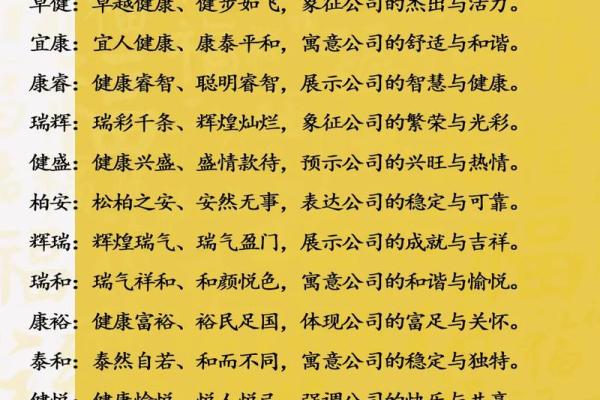 卓健：卓越健康、健步如飞，象征公司的杰出与活力。
宜康：宜人健康、康泰平和，寓意公司的舒适与和谐。
康睿：健康睿智、聪明睿智，展示公司的智慧与健康。
瑞辉：瑞彩千条、辉煌灿烂，象征公司的繁荣与光彩。
健盛：健康兴盛、盛情款待，预示公司的兴旺与热情。
柏安：松柏之安、安然无事，表达公司的稳定与可靠。
辉瑞：辉煌瑞气、瑞气盈门，展示公司的成就与吉祥。
瑞和：瑞气祥和、和颜悦色，寓意公司的和谐与愉悦。
康裕：健康富裕、裕民足国，体现公司的富足与关怀。
泰和：泰然自若、和而不同，寓意公司的稳定与独特。
健悦：健康愉悦、悦人悦己，强调公司的快乐与共享。